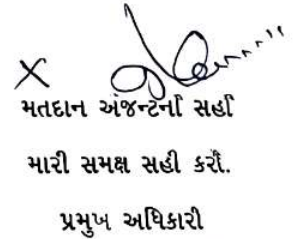 X
મતદાન એજન્ટની સહી
મારી સમક્ષ સહી કરી.
પ્રમુખ અધિકારી